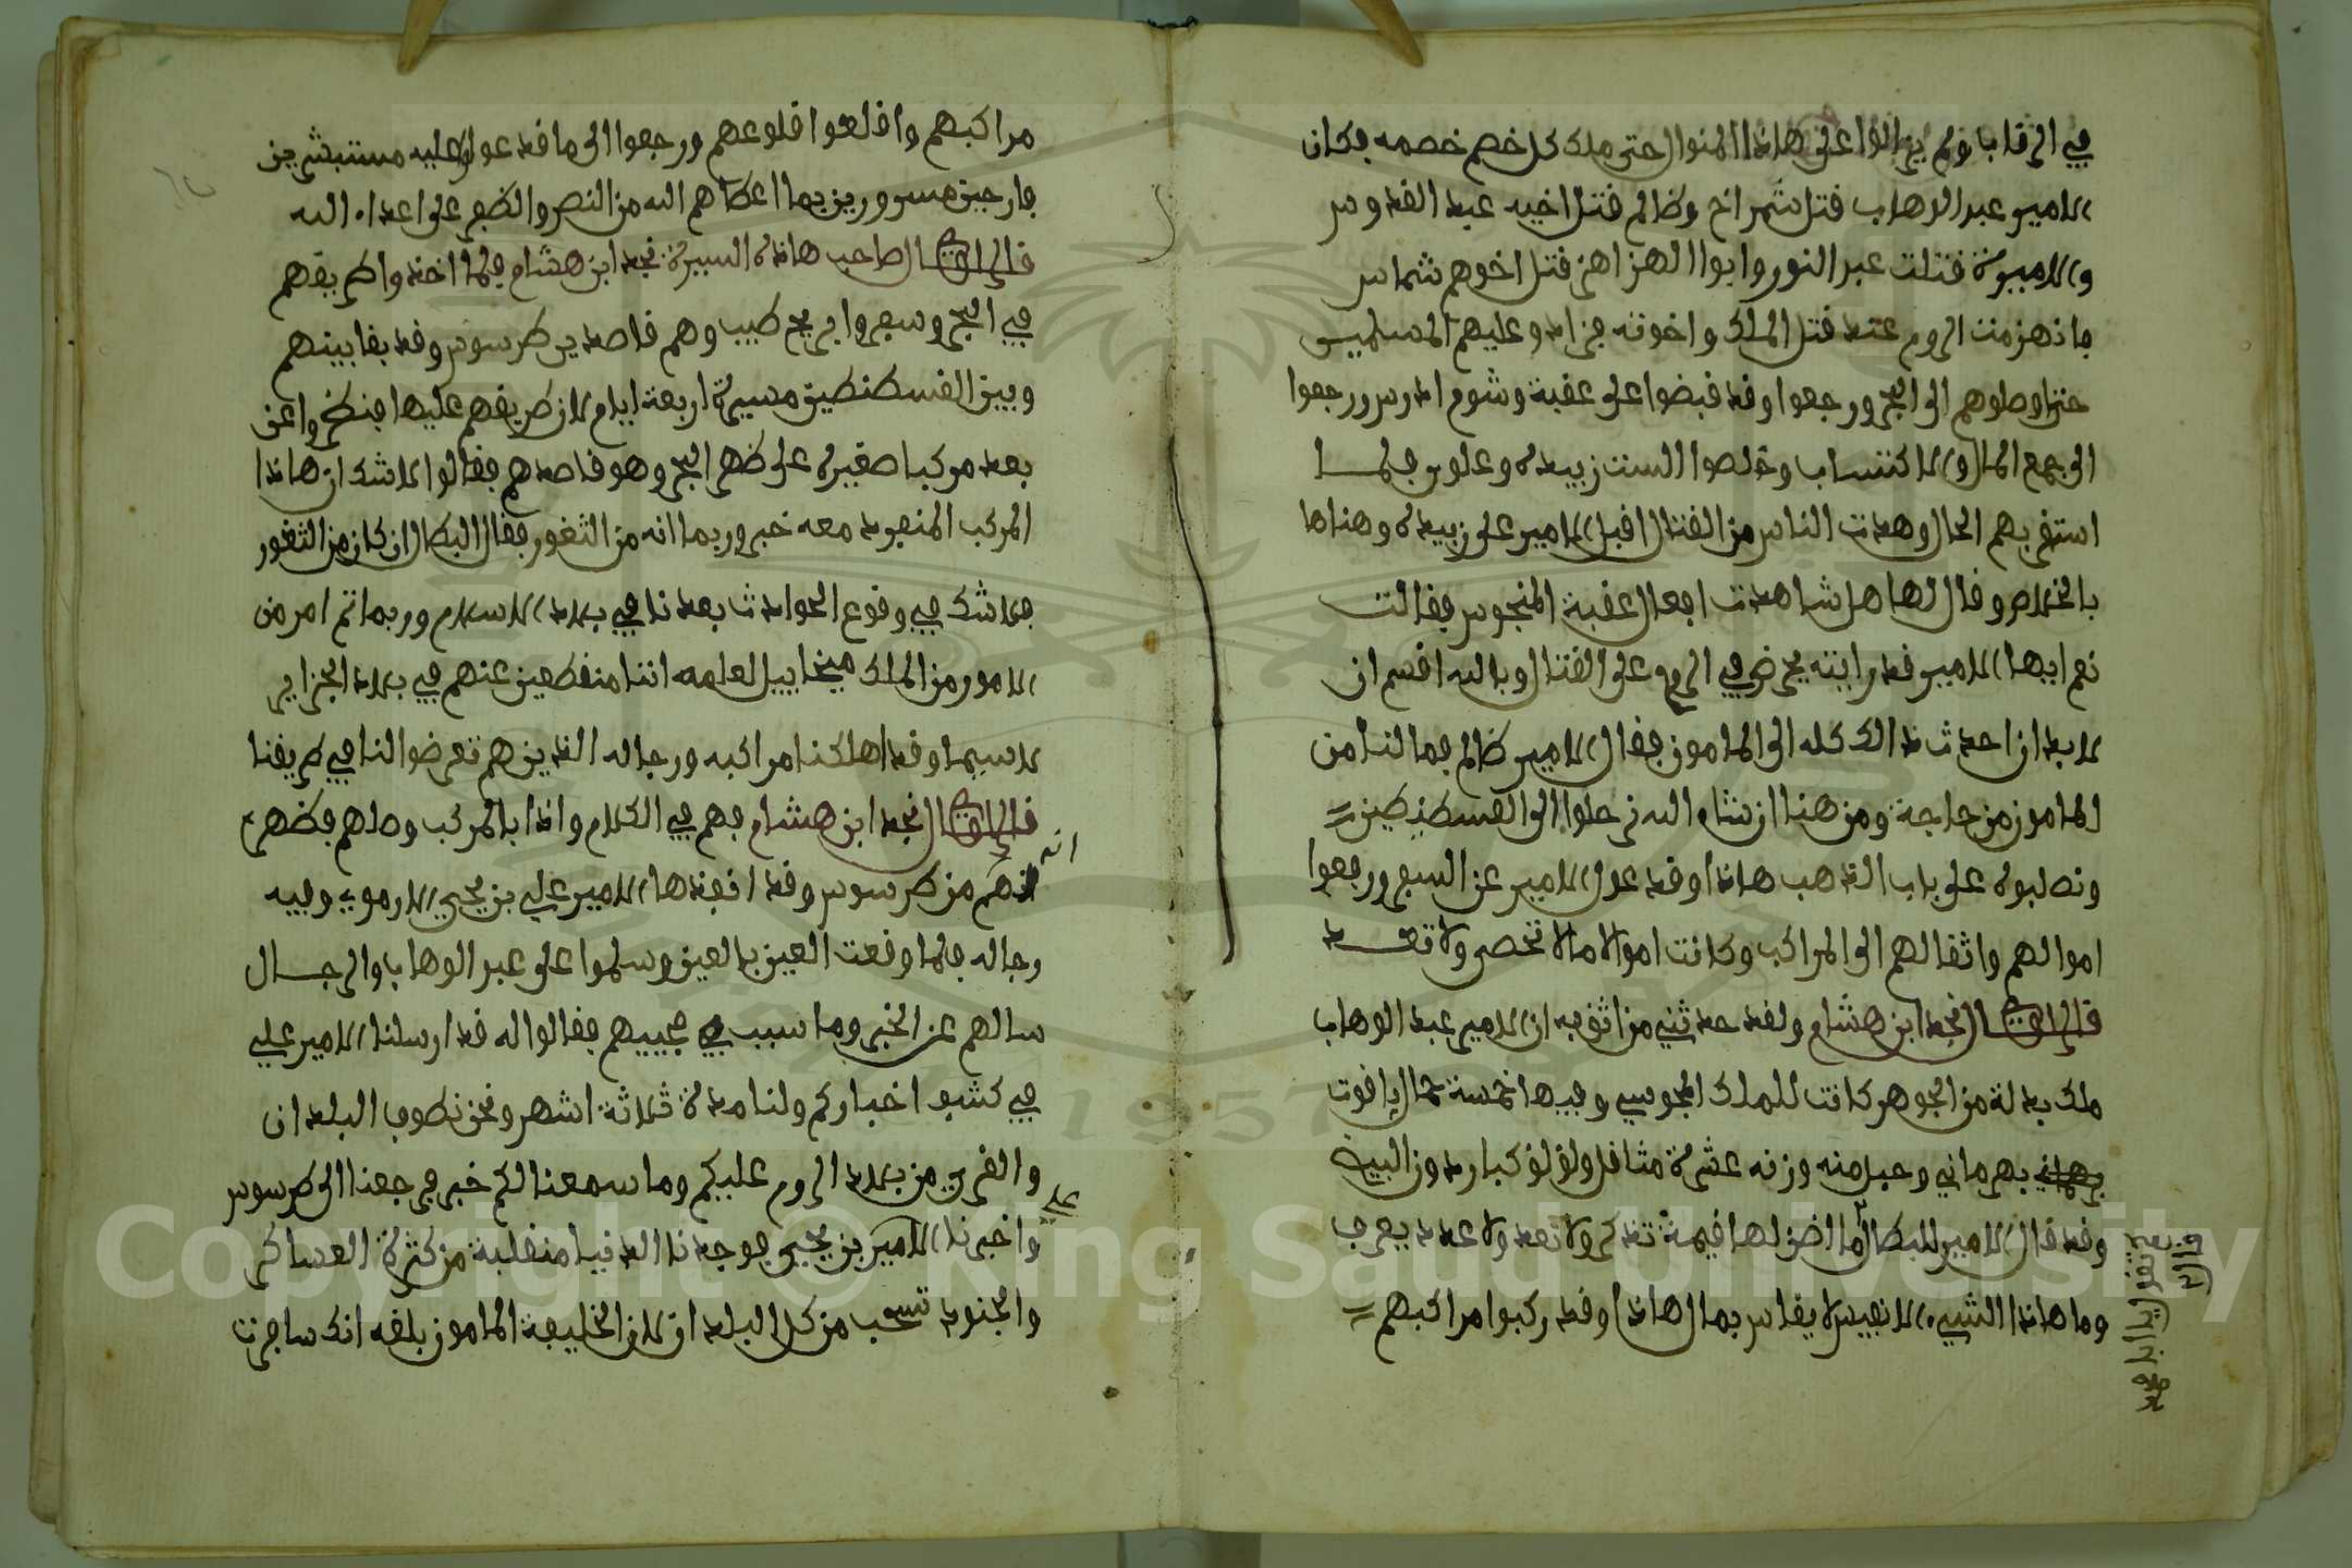 في الرقاب ولم يزالوا على هاذا المنوال حتى ملك كل خصم خصمه فكان
الامير عبد الوهاب قتل شمراخ وظالم قتل اخيه عبد القدوس
والاميرة قتلت عبد النور وابوا الهزاهز قتل اخوهم شماس
فانهزمت الروم عند قتل الملك واخوته فزادو عليهم المسلمين
حتى اوصلوهم الى البحر ورجعوا وقد قبضوا على عقبة وشوم ادرس ورجعوا
الى جمع المال والاكتساب وخلصوا الست زبيدة وعلوس فلما
استقر بهم الحال وهدت الناس من القتال اقبل الامير على زبيدة وهناها
بالخلاص وقال لها هل شاهدت افعال عقبة المنجوس فقالت
نعم ايها الامير قد رايته يحرض في الروم على القتال وبالله اقسم ان
لا بد ان احدث ذالك كله الى المامون فقال الامير ظالم فما لنا من
المامون من حاجة ومن هنا ان شاء الله نرحلوا الى القسطنطين
ونصلبوه على باب الذهب هاذا وقد عول الامير عن السفر ورفعوا
اموالهم واثقالهم الى المراكب وكانت اموالا مالا تحصر ولا تعد
قال الراوي قال نجد ابن هشام ولقد حدثني من اثق به ان الامير عبد الوهاب
ملك بدلة من الجوهر كانت للملك المجوسي وفيها خمسة حمال ياقوت
بهرماني وحبل منه وزنه عشرة مثاقل ولؤلؤ كبار دون البيض
وقد قال الامير للبطال ما اظن لها قيمة تذكر ولا تعد ولا عدد يعرف
وما هاذا الشيء الانفيس لا يقاس بمال هاذا وقد ركبوا مراكبهم
مراكبهم واقلعوا قلوعهم ورجعوا الى ما قد عولو عليه مستبشرين
فارحين مسرورين بما اعطاهم الله من النصر والظفر على اعداء الله
قال الراوي قال صاحب هاذه السيرة نجد ابن هشام فلما اخذوا طريقهم
في البحر وسفروا بريح طيب وهم قاصدين طرسوس وقد بقا بينهم
وبين القسطنطين مسيرة اربعة ايام لان طريقهم عليها فنظروا عن
بعد مركبا صغيرة على ظهر البحر وهو قاصدهم فقالوا لا شك ان هاذا
المركب المنفرد معه خبر وربما انه من الثغور فقال البطال ان كان من الثغور
فما شك في وقوع الحوادث بعدنا في بلاد الاسلام وربما تم امر من
الامور من الملك ميخاييل لعلمه اننا منقطعين عنهم في بلاد الجزاير
لاسيما وقد اهلكنا مراكبه ورجاله الذين هم تعرضوا لنا في طريقنا
قال الراوي قال نجد ابن هشام فهم في الكلام واذا بالمركب وصلهم فظهر
انه من طرسوس وقد انفذها الامير علي بن يحيي الارموي وفيه
رجاله فلما وقعت العين بالعين وسلموا على عبد الوهاب والرجال
سالهم عن الخبر وما سبب مجييهم فقالوا له قد ارسلنا الامير علي
في كشف اخباركم ولنا مدة ثلاثة اشهر ونحن نطوف البلدان
والقرى من بلاد الروم عليكم وما سمعنا لكم خبر فرجعنا الى طرسوس
واخبرنا الامير بن يحيي فوجدنا الدنيا منقلبة من كثرة العساكر
والجنود تسحب من كل البلدان لان الخليفة المامون بلغه انك سافرت